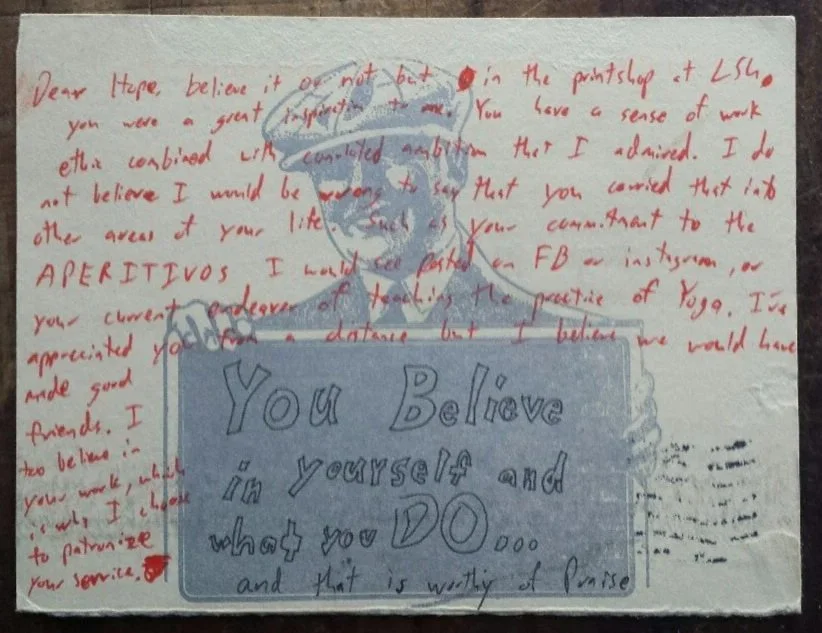 Dear Hope, believe it or not but in the printshop at LSh,
you were a great inspiration to me. You have a sense of work
ethic combined with ambition that I admired. I do
not believe I would be wrong to say that you carried that into
other areas of your life. Such as your commitment to the
APERITIVOS I would see posted on FB or instagram, or
your current endeavor of teaching the practice of Yoga. I've
appreciated you from a distance but I believe we would have
made good
friends. I
too believe in
your work, which
is why I choose
to patronize
your service.
You Believe
in yourself and
what you DO...
and that is worthy of Praise